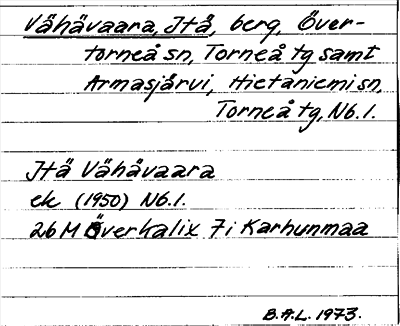 Vähävaara, Jtä, berg, Över-
torneå sn, Torneå tg samt
Armasjärvi, Hietaniemi sn,
Torneå tg, Nb.l.
Jtä Vähävaara
ek (1950) Nb.l.
26 M Överkalix 7i Karhunmaa
B.A.L. 1973.